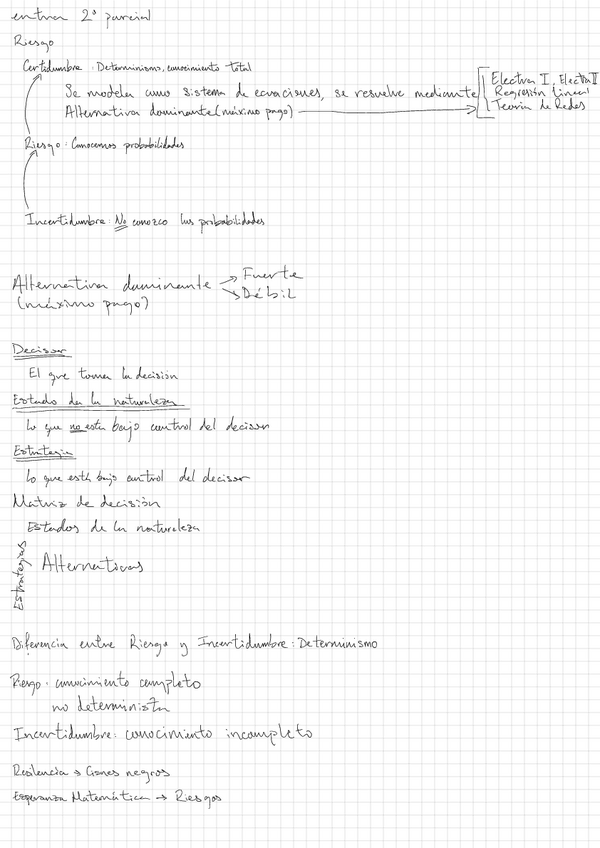 entra 2º parcial
Riesgo
Certidumbre: Determinismo, conocimiento total
Se modela como sistema de ecuaciones, se resuelve mediante
Electron I, Electron II
Regresión lineal
Teoría de Redes
Alternativa dominante (máximo pago)
Riesgo: Conocemos probabilidades
Incertidumbre: No conozco las probabilidades
Alternativa dominante → Fuerte
(máximo pago) → Débil
Decisor
El que toma la decisión
Estado de la naturaleza
Lo que no esta bajo control del decisor
Estrategia
Lo que está bajo control del decisor
Matriz de decisión
Estados de la naturaleza
Estrategias
Alternativas
Diferencia entre Riesgo y Incertidumbre: Determinismo
Riesgo: conocimiento completo
no determinista
Incertidumbre: conocimiento incompleto
Resilencia → Cisnes negros
Esperanza Matemática → Riesgos